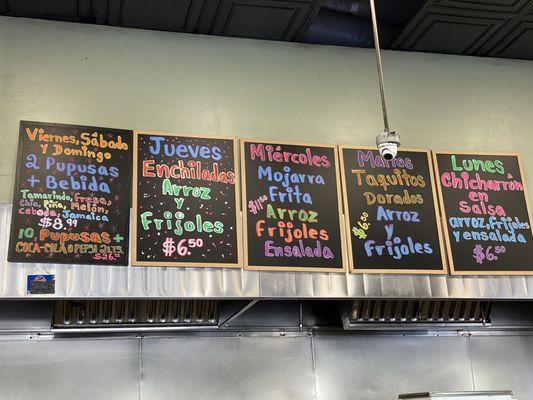 Viernes, Sábado
y Domingo
2 Pupusas
+ Bebida
Tamarindo, Fresa
Chía, Piña, Melón,
cebada, Jamaica
$8.99
10 Pupusas +
COCA-COLA O PEPSI 2LTS
$26.99
Jueves
Enchiladas
Arroz
y
Frijoles
$6.50
Miércoles
Mojarra
Frita
Arroz
Frijoles
Ensalada
Martes
Taquitos
Dorados
$6.50
Arroz
y Frijoles
Lunes
Chicharrón
en
Salsa
arroz, frijoles
y ensalada
$6.50